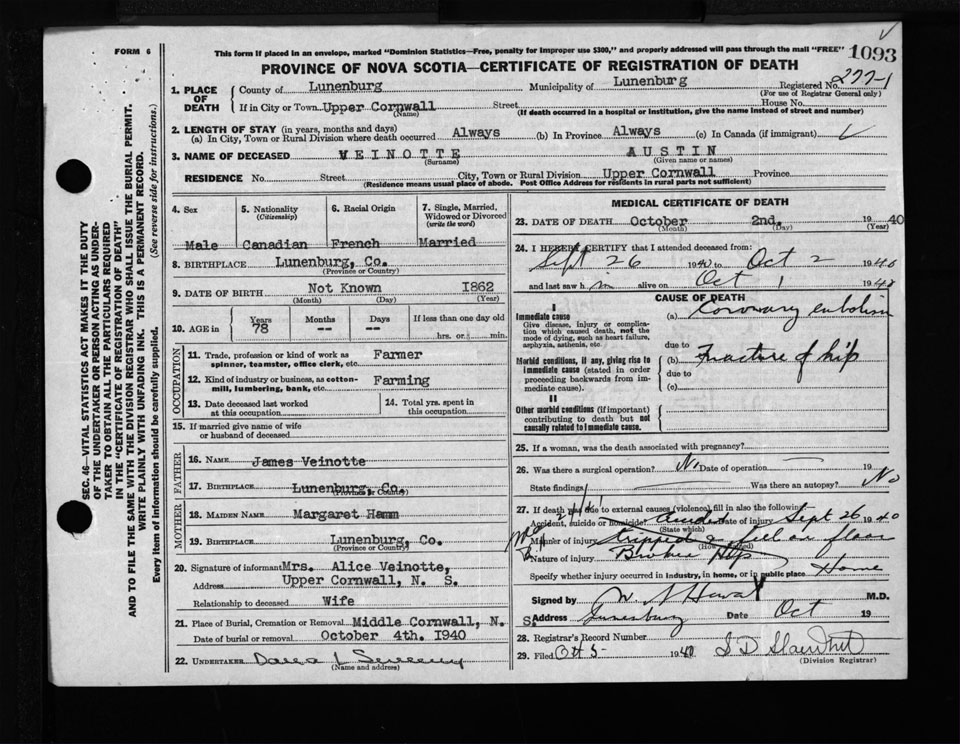 FORM 6
This form if placed in an envelope, marked "Dominion Statistics—Free, penalty for improper use $300," and properly addressed will pass through the mail "FREE"
1093
PROVINCE OF NOVA SCOTIA—CERTIFICATE OF REGISTRATION OF DEATH
277-1
1. PLACE OF DEATH
County of Lunenburg Municipality of Lunenburg Registered No.
(For use of Registrar General only)
If in City or Town Upper Cornwall Street House No.
(Name) (If death occurred in a hospital or institution, give the name instead of street and number)
2. LENGTH OF STAY (in years, months and days)
(a) In City, Town or Rural Division where death occurred Always (b) In Province Always (c) In Canada (if immigrant)
3. NAME OF DECEASED VEINOTTE AUSTIN
(Surname) (Given name or names)
RESIDENCE No. Street City, Town or Rural Division Upper Cornwall Province
(Residence means usual place of abode. Post Office Address for residents in rural parts not sufficient)
SEC. 46—VITAL STATISTICS ACT MAKES IT THE DUTY
OF THE UNDERTAKER OR PERSON ACTING AS UNDER-
TAKER TO OBTAIN ALL THE PARTICULARS REQUIRED
IN THE "CERTIFICATE OF REGISTRATION OF DEATH"
AND TO FILE THE SAME WITH THE DIVISION REGISTRAR WHO SHALL ISSUE THE BURIAL PERMIT.
WRITE PLAINLY WITH UNFADING INK. THIS IS A PERMANENT RECORD.
Every item of information should be carefully supplied. (See reverse side for instructions.)
4. Sex 5. Nationality (Citizenship) 6. Racial Origin 7. Single, Married, Widowed or Divorced (write the word)
Male Canadian French Married
8. BIRTHPLACE Lunenburg, Co.
(Province or Country)
9. DATE OF BIRTH Not Known 1862
(Month) (Day) (Year)
10. AGE in Years Months Days If less than one day old
78 -- -- hrs. or min.
OCCUPATION
11. Trade, profession or kind of work as spinner, teamster, office clerk, etc. Farmer
12. Kind of industry or business, as cotton-mill, lumbering, bank, etc. Farming
13. Date deceased last worked at this occupation 14. Total yrs. spent in this occupation
15. If married give name of wife or husband of deceased
FATHER
16. NAME James Veinotte
17. BIRTHPLACE Lunenburg, Co.
(Province or Country)
MOTHER
18. MAIDEN NAME Margaret Hamm
19. BIRTHPLACE Lunenburg, Co.
(Province or Country)
20. Signature of informant Mrs. Alice Veinotte,
Address Upper Cornwall, N. S.
Relationship to deceased Wife
21. Place of Burial, Cremation or Removal Middle Cornwall, N. S
Date of burial or removal October 4th. 1940
22. UNDERTAKER
(Name and address)
MEDICAL CERTIFICATE OF DEATH
23. DATE OF DEATH October 2nd, 1940
(Month) (Day) (Year)
24. I HEREBY CERTIFY that I attended deceased from:
Sept 26 1940 to Oct 2 1940
and last saw h im alive on Oct 1 1940
CAUSE OF DEATH
I
Immediate cause (a) Coronary embolism
Give disease, injury or complication which caused death, not the mode of dying, such as heart failure, asphyxia, asthenia, etc.
due to
Morbid conditions, if any, giving rise to immediate cause (stated in order proceeding backwards from immediate cause). (b) Fracture of hip
due to
(c)
II
Other morbid conditions (if important) contributing to death but not causally related to immediate cause.
25. If a woman, was the death associated with pregnancy?
26. Was there a surgical operation? No Date of operation 19
State findings Was there an autopsy? No
27. If death was due to external causes (violence) fill in also the following:
Accident, suicide or homicide? Accident Date of injury Sept 26 1940
(State which)
Manner of injury tripped & fell on floor
(How sustained)
Nature of injury Broken Hip
Specify whether injury occurred in industry, in home, or in public place Home
Signed by M.D.
Address Lunenburg Date Oct 19
28. Registrar's Record Number
29. Filed Oct 5- 1940
(Division Registrar)